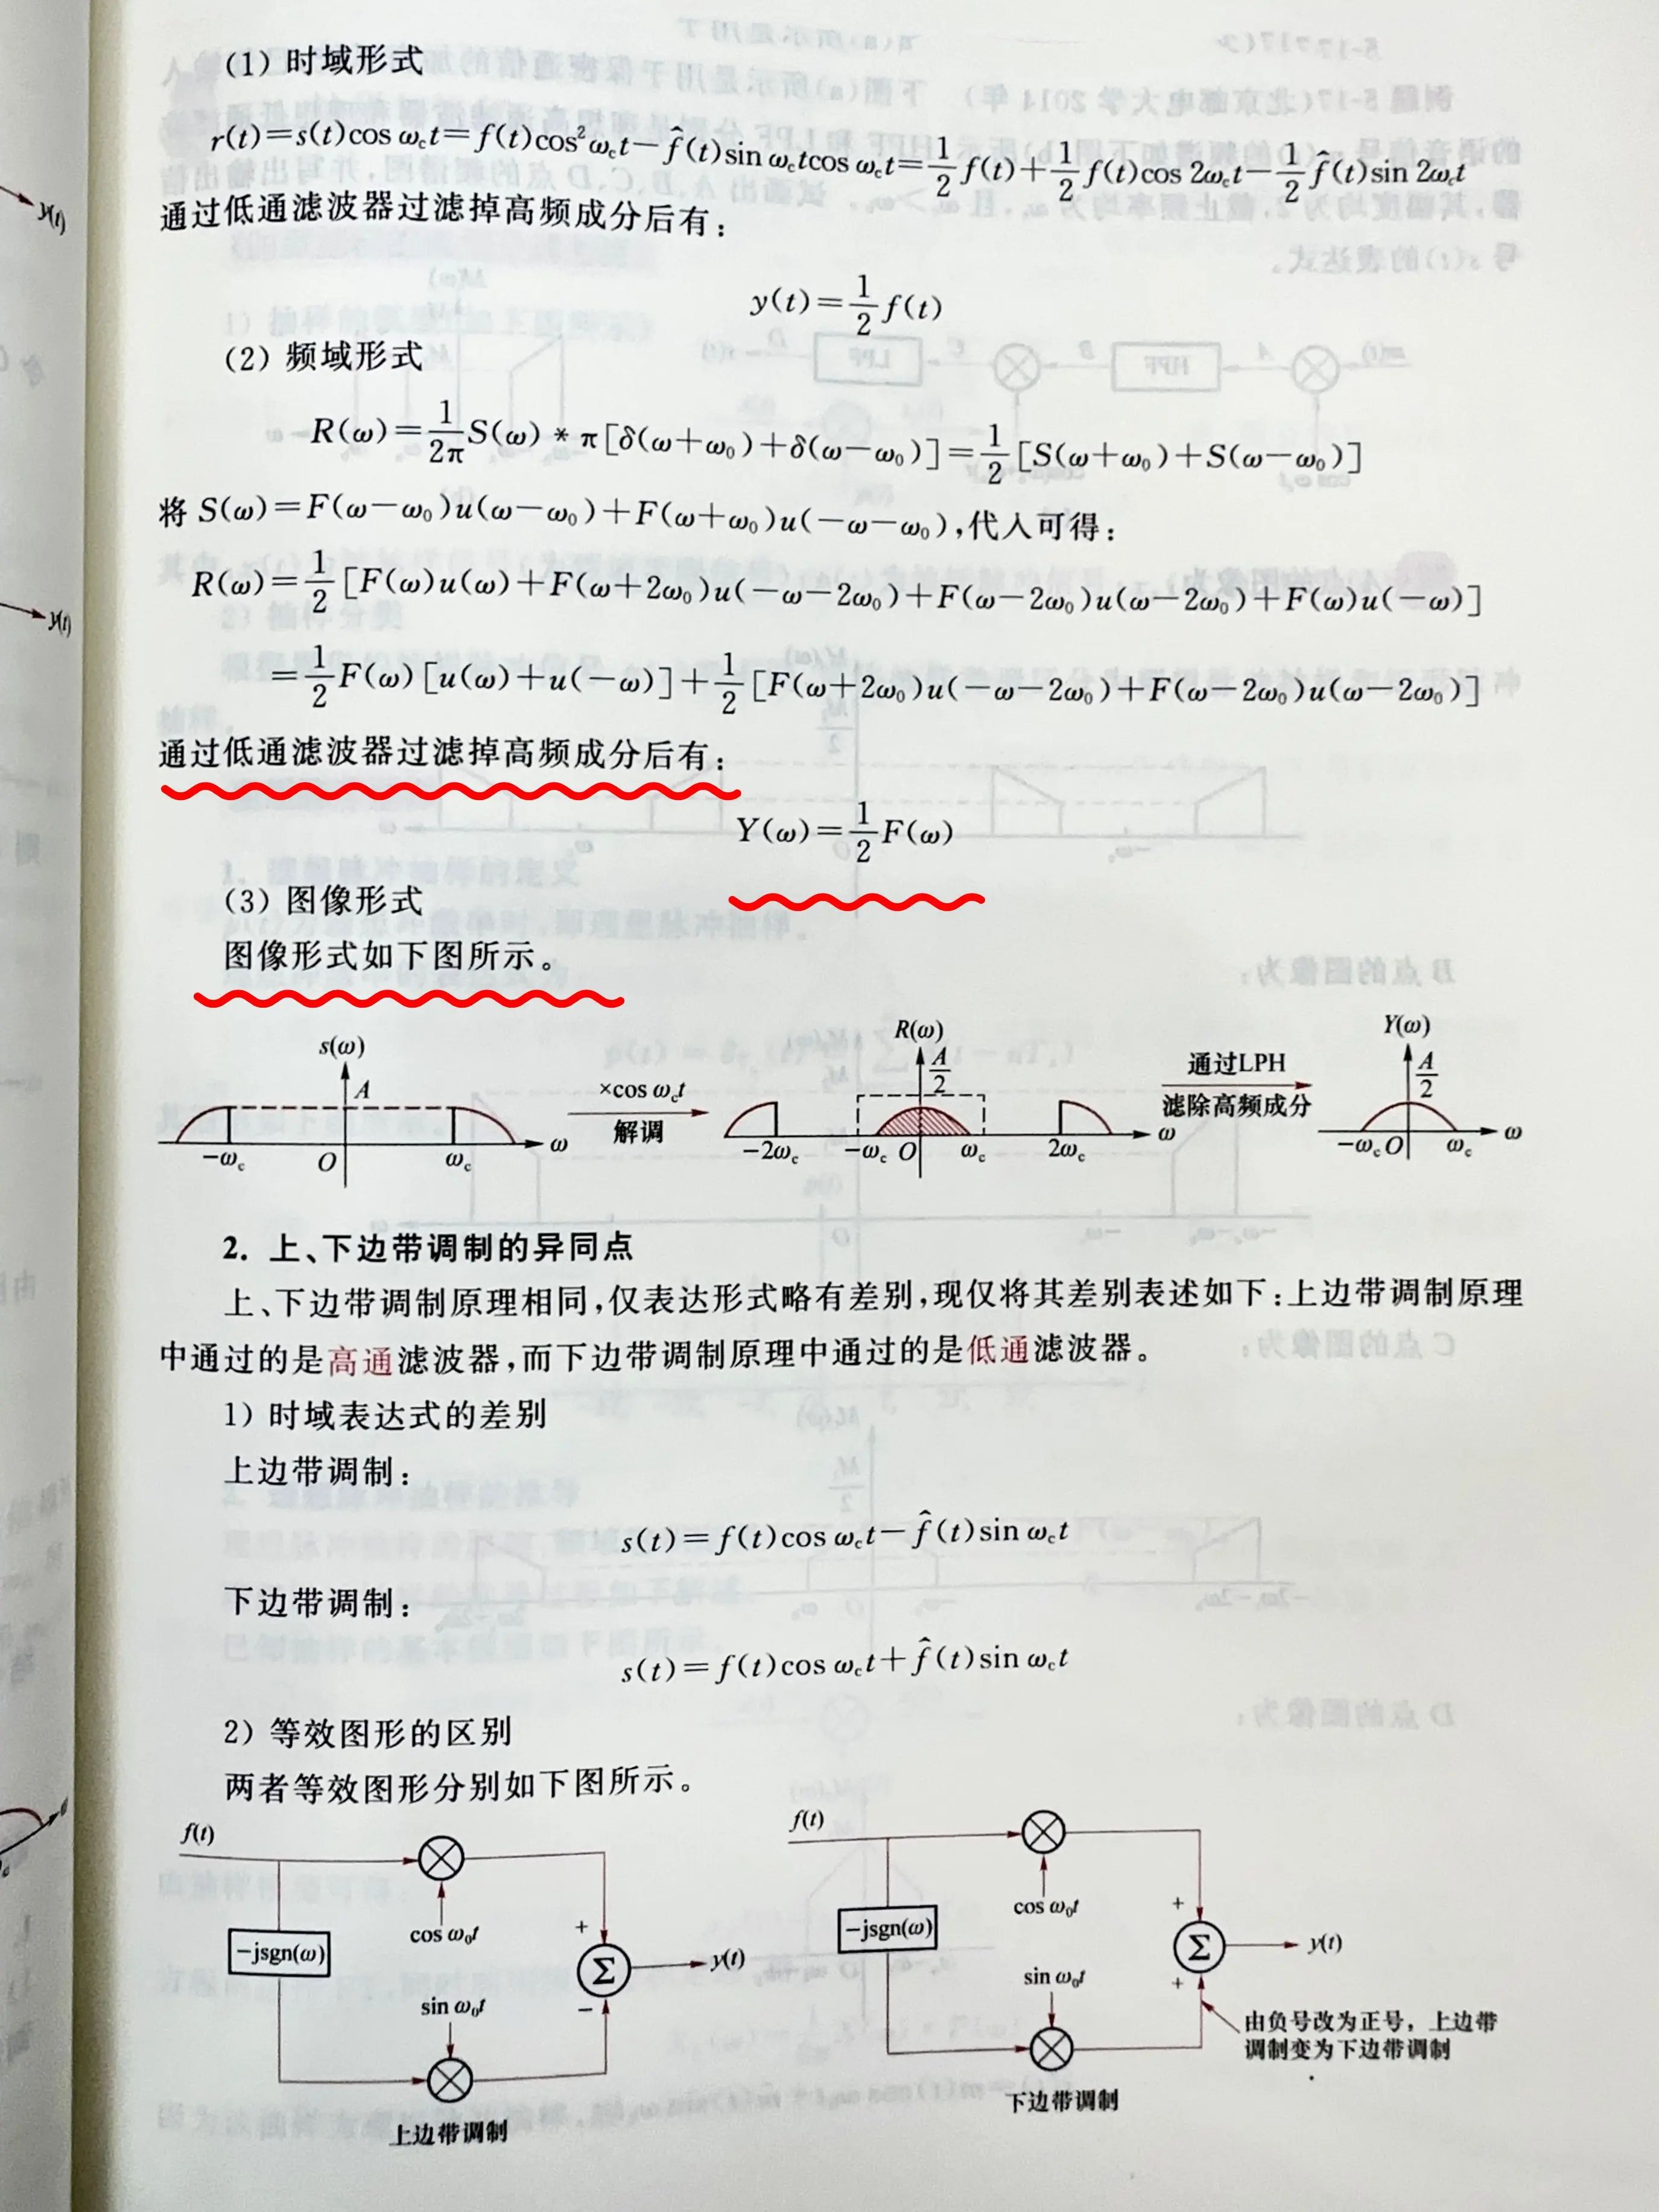 (1) 时域形式
r(t)=s(t)cos ω_c t=f(t)cos²ω_c t−f̂(t)sin ω_c tcos ω_c t=1/2 f(t)+1/2 f(t)cos 2ω_c t−1/2 f̂(t)sin 2ω_c t
通过低通滤波器过滤掉高频成分后有:
y(t)=1/2 f(t)
(2) 频域形式
R(ω)=1/2π S(ω)*π[δ(ω+ω₀)+δ(ω−ω₀)]=1/2[S(ω+ω₀)+S(ω−ω₀)]
将 S(ω)=F(ω−ω₀)u(ω−ω₀)+F(ω+ω₀)u(−ω−ω₀),代入可得:
R(ω)=1/2[F(ω)u(ω)+F(ω+2ω₀)u(−ω−2ω₀)+F(ω−2ω₀)u(ω−2ω₀)+F(ω)u(−ω)]
=1/2 F(ω)[u(ω)+u(−ω)]+1/2[F(ω+2ω₀)u(−ω−2ω₀)+F(ω−2ω₀)u(ω−2ω₀)]
通过低通滤波器过滤掉高频成分后有:
Y(ω)=1/2 F(ω)
(3) 图像形式
图像形式如下图所示。
s(ω)
A
−ω_c O ω_c ω
×cos ω_c t
解调
R(ω)
A/2
−2ω_c −ω_c O ω_c 2ω_c ω
通过LPH
滤除高频成分
Y(ω)
A/2
−ω_c O ω_c ω
2. 上、下边带调制的异同点
上、下边带调制原理相同,仅表达形式略有差别,现仅将其差别表述如下:上边带调制原理
中通过的是高通滤波器,而下边带调制原理中通过的是低通滤波器。
1) 时域表达式的差别
上边带调制:
s(t)=f(t)cos ω_c t−f̂(t)sin ω_c t
下边带调制:
s(t)=f(t)cos ω_c t+f̂(t)sin ω_c t
2) 等效图形的区别
两者等效图形分别如下图所示。
f(t)
cos ω₀t
−jsgn(ω)
sin ω₀t
+
Σ
−
y(t)
上边带调制
f(t)
cos ω₀t
−jsgn(ω)
sin ω₀t
+
Σ
+
y(t)
由负号改为正号，上边带
调制变为下边带调制
下边带调制
y(t)
y(t)